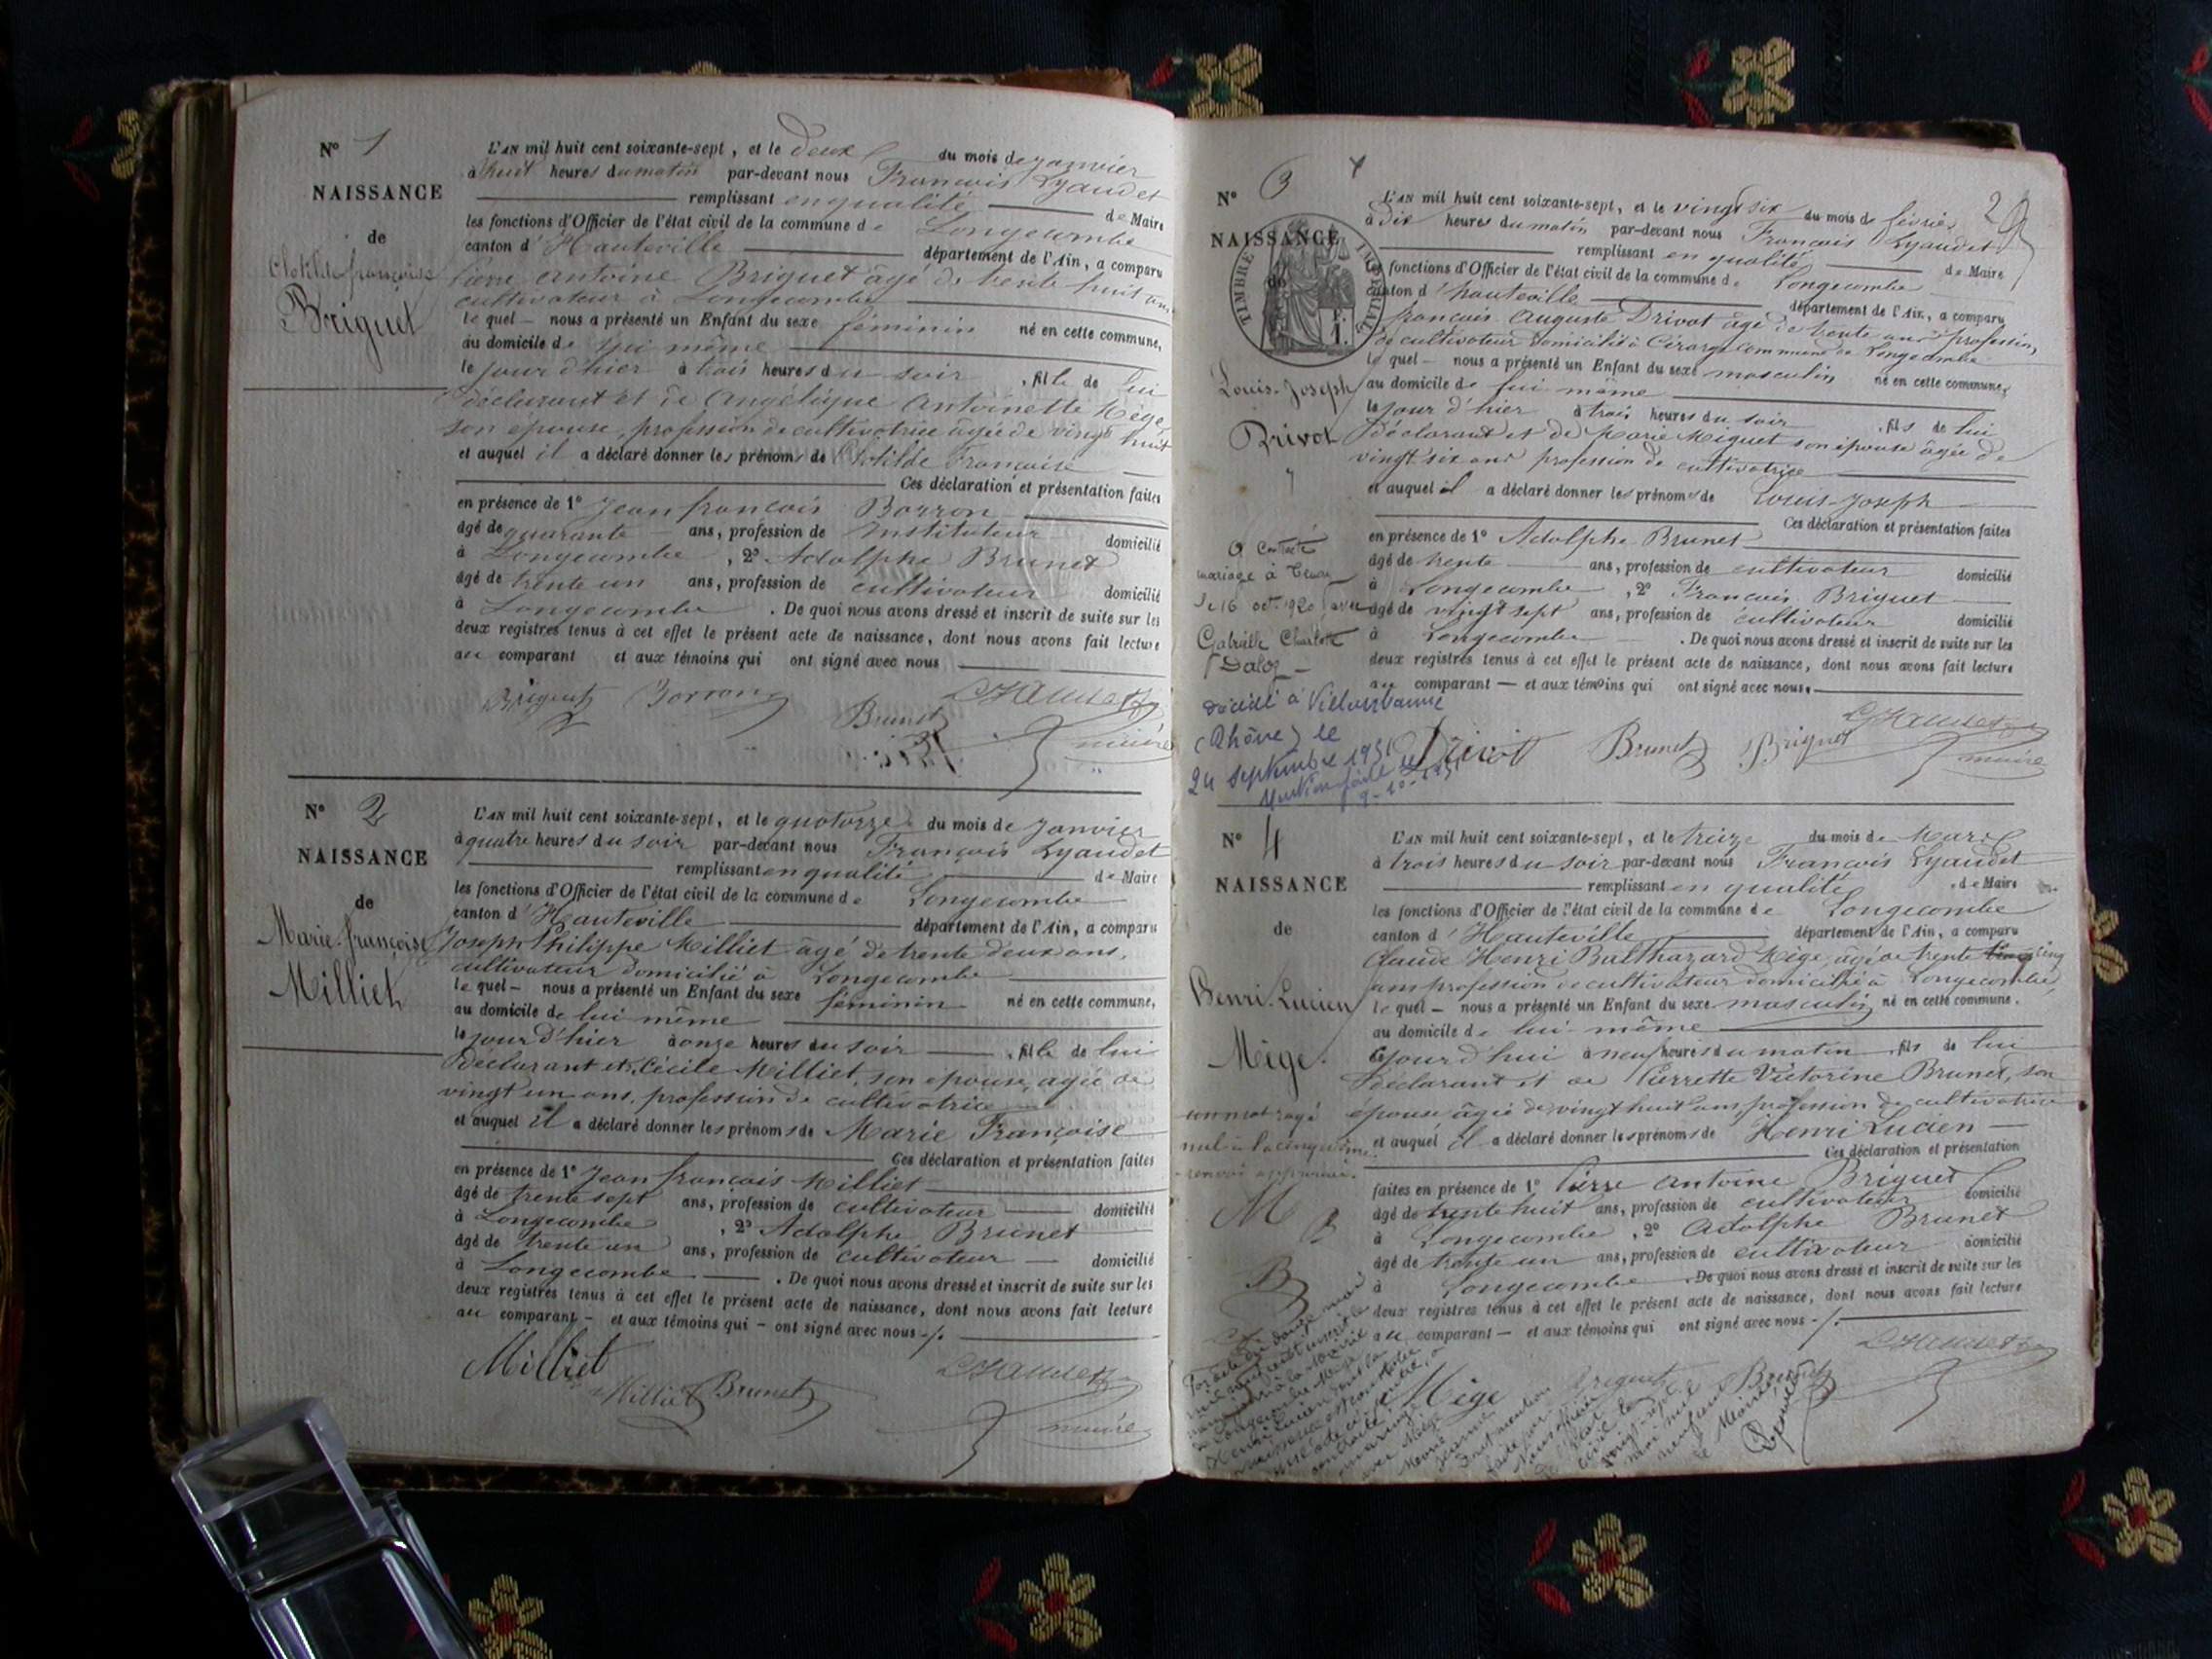 N° 1
NAISSANCE
de
Clotilde françoise
Briguet
L'AN mil huit cent soixante-sept, et le deux du mois de janvier
à huit heures du matin par-devant nous François Lyaudet
remplissant en qualité de Maire
les fonctions d'Officier de l'état civil de la commune de Longecombe
canton d'Hauteville département de l'Ain, a comparu
Pierre Antoine Briguet âgé de trente huit ans
cultivateur à Longecombe
lequel nous a présenté un Enfant du sexe féminin né en cette commune,
au domicile de lui même
le jour d'hier à trois heures du soir, fille de lui
déclarant et de Angélique Antoinette Mège
son épouse, profession de cultivatrice âgée de vingt huit
et auquel il a déclaré donner les prénoms de Clotilde Françoise
Ces déclaration et présentation faites
en présence de 1° Jean françois Borron
âgé de quarante ans, profession de Instituteur domicilié
à Longecombe, 2° Adolphe Brunet
âgé de trente un ans, profession de cultivateur domicilié
à Longecombe. De quoi nous avons dressé et inscrit de suite sur les
deux registres tenus à cet effet le présent acte de naissance, dont nous avons fait lecture
au comparant et aux témoins qui ont signé avec nous
Briguet Borron Brunet Lyaudet
maire
N° 2
NAISSANCE
de
Marie-françoise
Milliet
L'AN mil huit cent soixante-sept, et le quatorze du mois de Janvier
à quatre heures du soir par-devant nous François Lyaudet
remplissant en qualité de Maire
les fonctions d'Officier de l'état civil de la commune de Longecombe
canton d'Hauteville département de l'Ain, a comparu
Joseph Philippe Milliet âgé de trente deux ans,
cultivateur domicilié à Longecombe
lequel nous a présenté un Enfant du sexe féminin né en cette commune,
au domicile de lui même
le jour d'hier à onze heures du soir, fille de lui
déclarant et Cécile Milliet, son épouse, âgée de
vingt un ans, profession de cultivatrice
et auquel il a déclaré donner les prénoms de Marie Françoise
Ces déclaration et présentation faites
en présence de 1° Jean françois Milliet
âgé de trente sept ans, profession de cultivateur domicilié
à Longecombe, 2° Adolphe Brunet
âgé de trente un ans, profession de cultivateur domicilié
à Longecombe. De quoi nous avons dressé et inscrit de suite sur les
deux registres tenus à cet effet le présent acte de naissance, dont nous avons fait lecture
au comparant et aux témoins qui ont signé avec nous
Milliet
Milliet Brunet Lyaudet
maire
N° 3
NAISSANCE
de
TIMBRE IMPÉRIAL
Louis-Joseph
Drivot
L'AN mil huit cent soixante-sept, et le vingt six du mois de février
2
à dix heures du matin par-devant nous François Lyaudet
remplissant en qualité de Maire
les fonctions d'Officier de l'état civil de la commune de Longecombe
canton d'hauteville département de l'Ain, a comparu
françois Auguste Drivot âgé de trente ans profession
de cultivateur domicilié à commune de Longecombe
lequel nous a présenté un Enfant du sexe masculin né en cette commune,
au domicile de lui même
le jour d'hier à trois heures du soir, fils de lui
déclarant et de Marie Miguet son épouse âgée de
vingt six ans profession de cultivatrice
et auquel il a déclaré donner les prénoms de Louis-Joseph
Ces déclaration et présentation faites
en présence de 1° Adolphe Brunet
âgé de trente ans, profession de cultivateur domicilié
à Longecombe, 2° François Briguet
âgé de vingt sept ans, profession de cultivateur domicilié
à Longecombe. De quoi nous avons dressé et inscrit de suite sur les
deux registres tenus à cet effet le présent acte de naissance, dont nous avons fait lecture
au comparant et aux témoins qui ont signé avec nous.
Drivot Brunet Briguet Lyaudet
maire
a contracté
mariage à
le 16 oct 1920 avec
Gabrielle Charlotte
Daloz
décédé à Villeurbanne
(Rhône) le
24 septembre 1951
Mention faite le
9-10-1951
N° 4
NAISSANCE
de
Henri-Lucien
Mège.
L'AN mil huit cent soixante-sept, et le treize du mois de Mars
à trois heures du soir par-devant nous François Lyaudet
remplissant en qualité de Maire
les fonctions d'Officier de l'état civil de la commune de Longecombe
canton d'Hauteville département de l'Ain, a comparu
Claude Henri Balthazard Mège, âgé de trente cinq
ans profession de cultivateur domicilié à Longecombe
lequel nous a présenté un Enfant du sexe masculin né en cette commune.
au domicile de lui-même
cejourd'hui à neuf heures du matin, fils de lui
déclarant et de Pierrette Victorine Brunet, son
épouse âgée de vingt huit ans profession de cultivatrice
et auquel il a déclaré donner les prénoms de Henri Lucien
Ces déclaration et présentation
faites en présence de 1° Pierre Antoine Briguet
âgé de trente huit ans, profession de cultivateur domicilié
à Longecombe, 2° Adolphe Brunet
âgé de trente un ans, profession de cultivateur domicilié
à Longecombe. De quoi nous avons dressé et inscrit de suite sur les
deux registres tenus à cet effet le présent acte de naissance, dont nous avons fait lecture
au comparant et aux témoins qui ont signé avec nous
Mège Briguet Brunet Lyaudet
un mot rayé
nul à la cinquième
renvoi approuvé.
M B
B